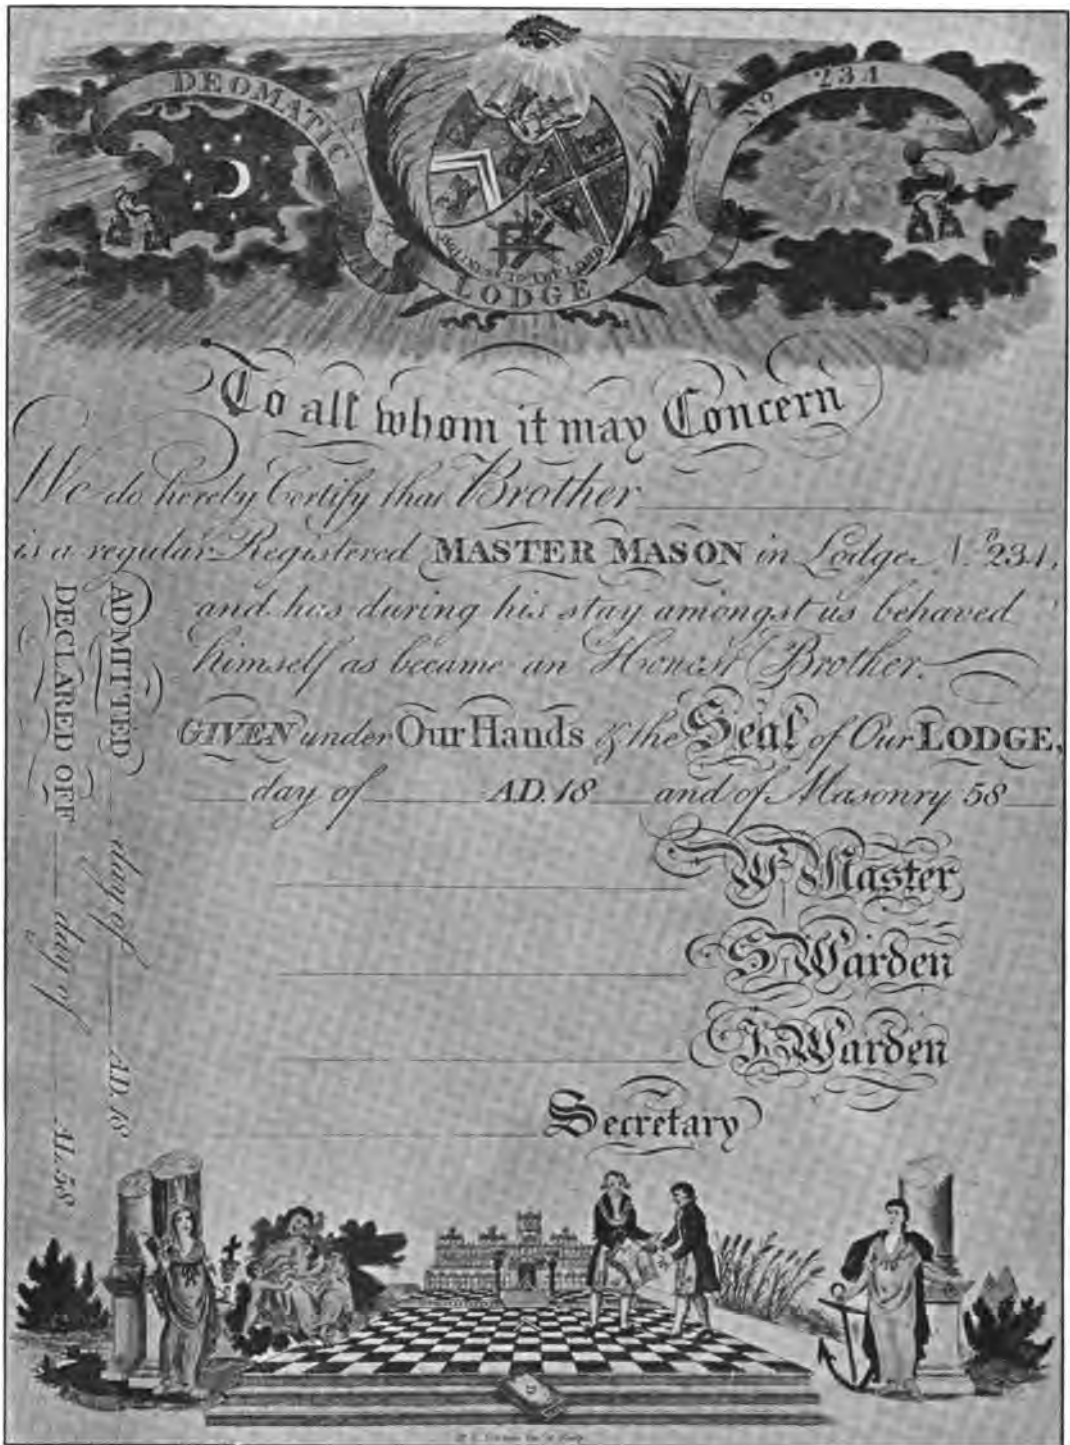 DEOMATIC
No 234
HOLINESS TO THE LORD
LODGE
To all whom it may Concern
We do hereby Certify that Brother
is a regular Registered MASTER MASON in Lodge No. 234,
and has during his stay amongst us behaved
himself as became an Honest Brother.
GIVEN under Our Hands & the Seal of Our LODGE,
day of AD. 18 and of Masonry 58
Wr. Master
S. Warden
J. Warden
Secretary
ADMITTED day of AD. 18
DECLARED OFF day of AL. 58